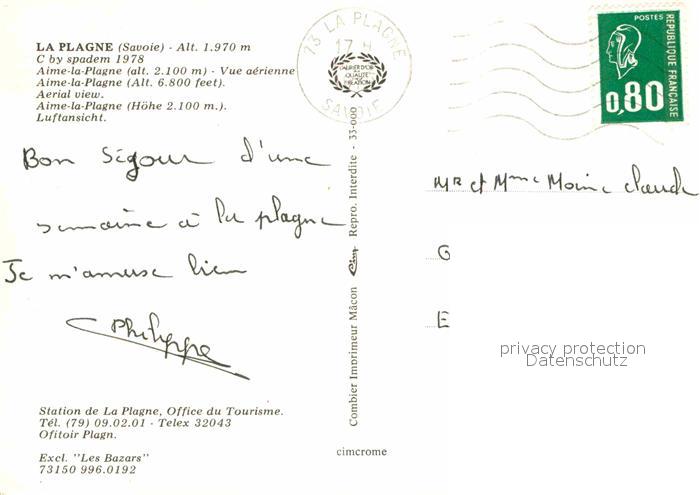 LA PLAGNE (Savoie) - Alt. 1.970 m
C by spadem 1978
Aime-la-Plagne (alt. 2.100 m) - Vue aérienne
Aime-la-Plagne (Alt. 6.800 feet).
Aerial view.
Aime-la-Plagne (Höhe 2.100 m.).
Luftansicht.
Bon Séjour d'une
semaine à la plagne
Je m'amuse bien
Philippe
Station de La Plagne, Office du Tourisme.
Tél. (79) 09.02.01 - Telex 32043
Ofitoir Plagn.
Excl. "Les Bazars"
73150 996.0192
73 LA PLAGNE
17 H
SAVOIE
Combier Imprimeur Mâcon Cim Repro. Interdite - 33-000
cimcrome
POSTES
REPUBLIQUE FRANÇAISE
0,80
Mr et Mme Moine claude
G
E
privacy protection
Datenschutz